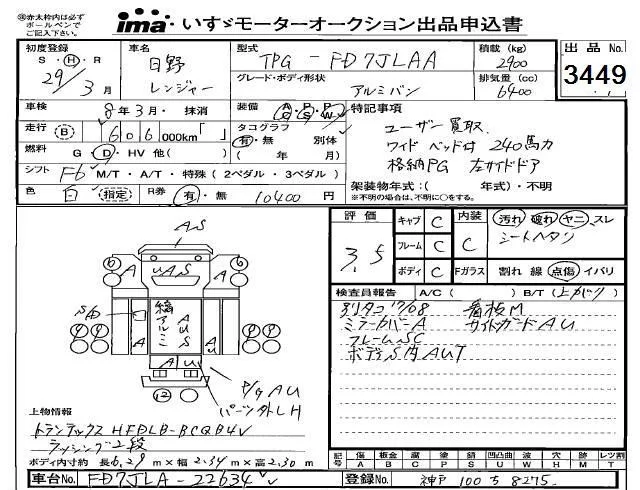 ㊟赤太枠内は必ず
ボールペンで
ご記入下さい。
ima いすゞモーターオークション出品申込書
初度登録 S・H・R 29/3月
車名 日野 レンジャー
型式 TPG-FD7JLAA
グレード・ボディ形状 アルミバン
積載(kg) 2900
排気量(cc) 6400
出品No. 3449
車検 8年3月・抹消
装備 AC PS PW
特記事項
ユーザー買取
ワイド ベッド付 240馬力
格納PG 左サイドドア
走行 B 606,000km「 」
タコグラフ 有・無 別体 ( 年 月)
燃料 G・D・HV 他( )
シフト F6 M/T・A/T・特殊(2ペダル・3ペダル)
架装物年式:( 年式)・不明
※不明の場合は、不明に○をする。
色 白 指定 R券 有・無 10400円
評価 3.5
キャブ C 内装 C 汚れ 破れ ヤニ スレ
シートヘタリ
フレーム C
ボディ C Fガラス 割れ 線 点傷 イバリ
検査員報告 A/C( ) B/T(上がり)
別タコ 17/08 看板M
ミラーカバーA サイドガードAU
フレームSC
ボディS内AUT
AS
6 A UAS A 6
Sb 縞アルミ AUS
A A
A U
12
P/G AU
パーツ外LH
上物情報
トランテックス HFDLB-BCQB4V
ラッシング2段
ボディ内寸約 長6.29m×幅2.34m×高2.30m
記号 傷 板金 腐 塗 錆 凹凸曲 割 穴 無 レツ割
A B C P S U W H M T
車台No. FD7JLA-22634
登録No. 神戸 100 ち 8275